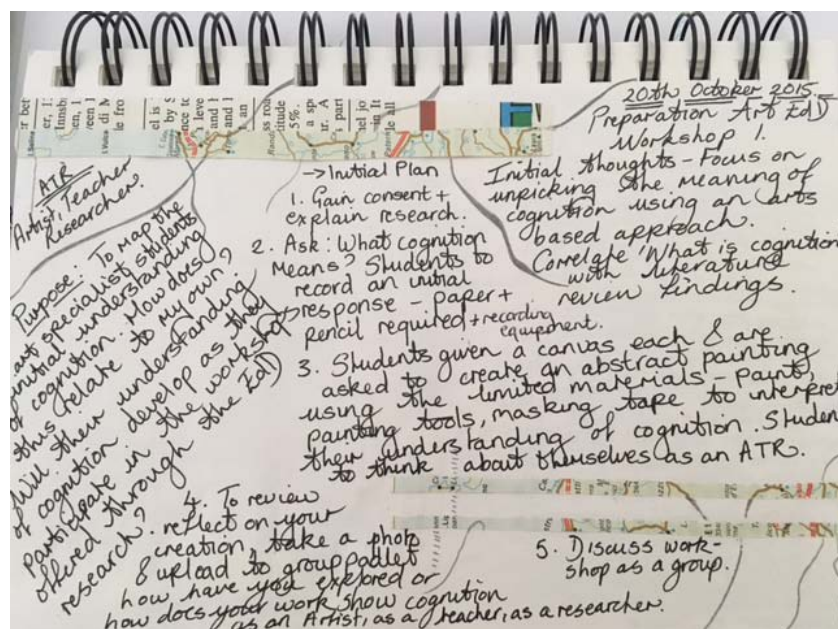 20th October 2015.
Preparation Art EdD
Workshop 1.
Initial thoughts - Focus on
unpicking the meaning of
cognition using an arts
based approach.
Correlate 'What is cognition
with literature
review findings.
ATR
Artist, Teacher
Researcher.
Purpose: To map the
art specialist students
initial understanding
of cognition. How does
this relate to my own?
Will their understanding
of cognition develop as they
participate in the workshops
offered through the EdD
research?
→ Initial Plan
1. Gain consent +
explain research.
2. Ask: What cognition
Means? Students to
record an initial
response - paper +
pencil required + recording
equipment.
3. Students given a canvas each & are
asked to create an abstract painting
using the limited materials - paint,
painting tools, masking tape to interpret
their understanding of cognition. Student
to think about themselves as an ATR.
4. To review
reflect on your
creation, take a photo
& upload to group padlet
how have you explored or
how does your work show cognition
as an Artist, as a teacher, as a researcher.
5. Discuss work-
shop as a group.